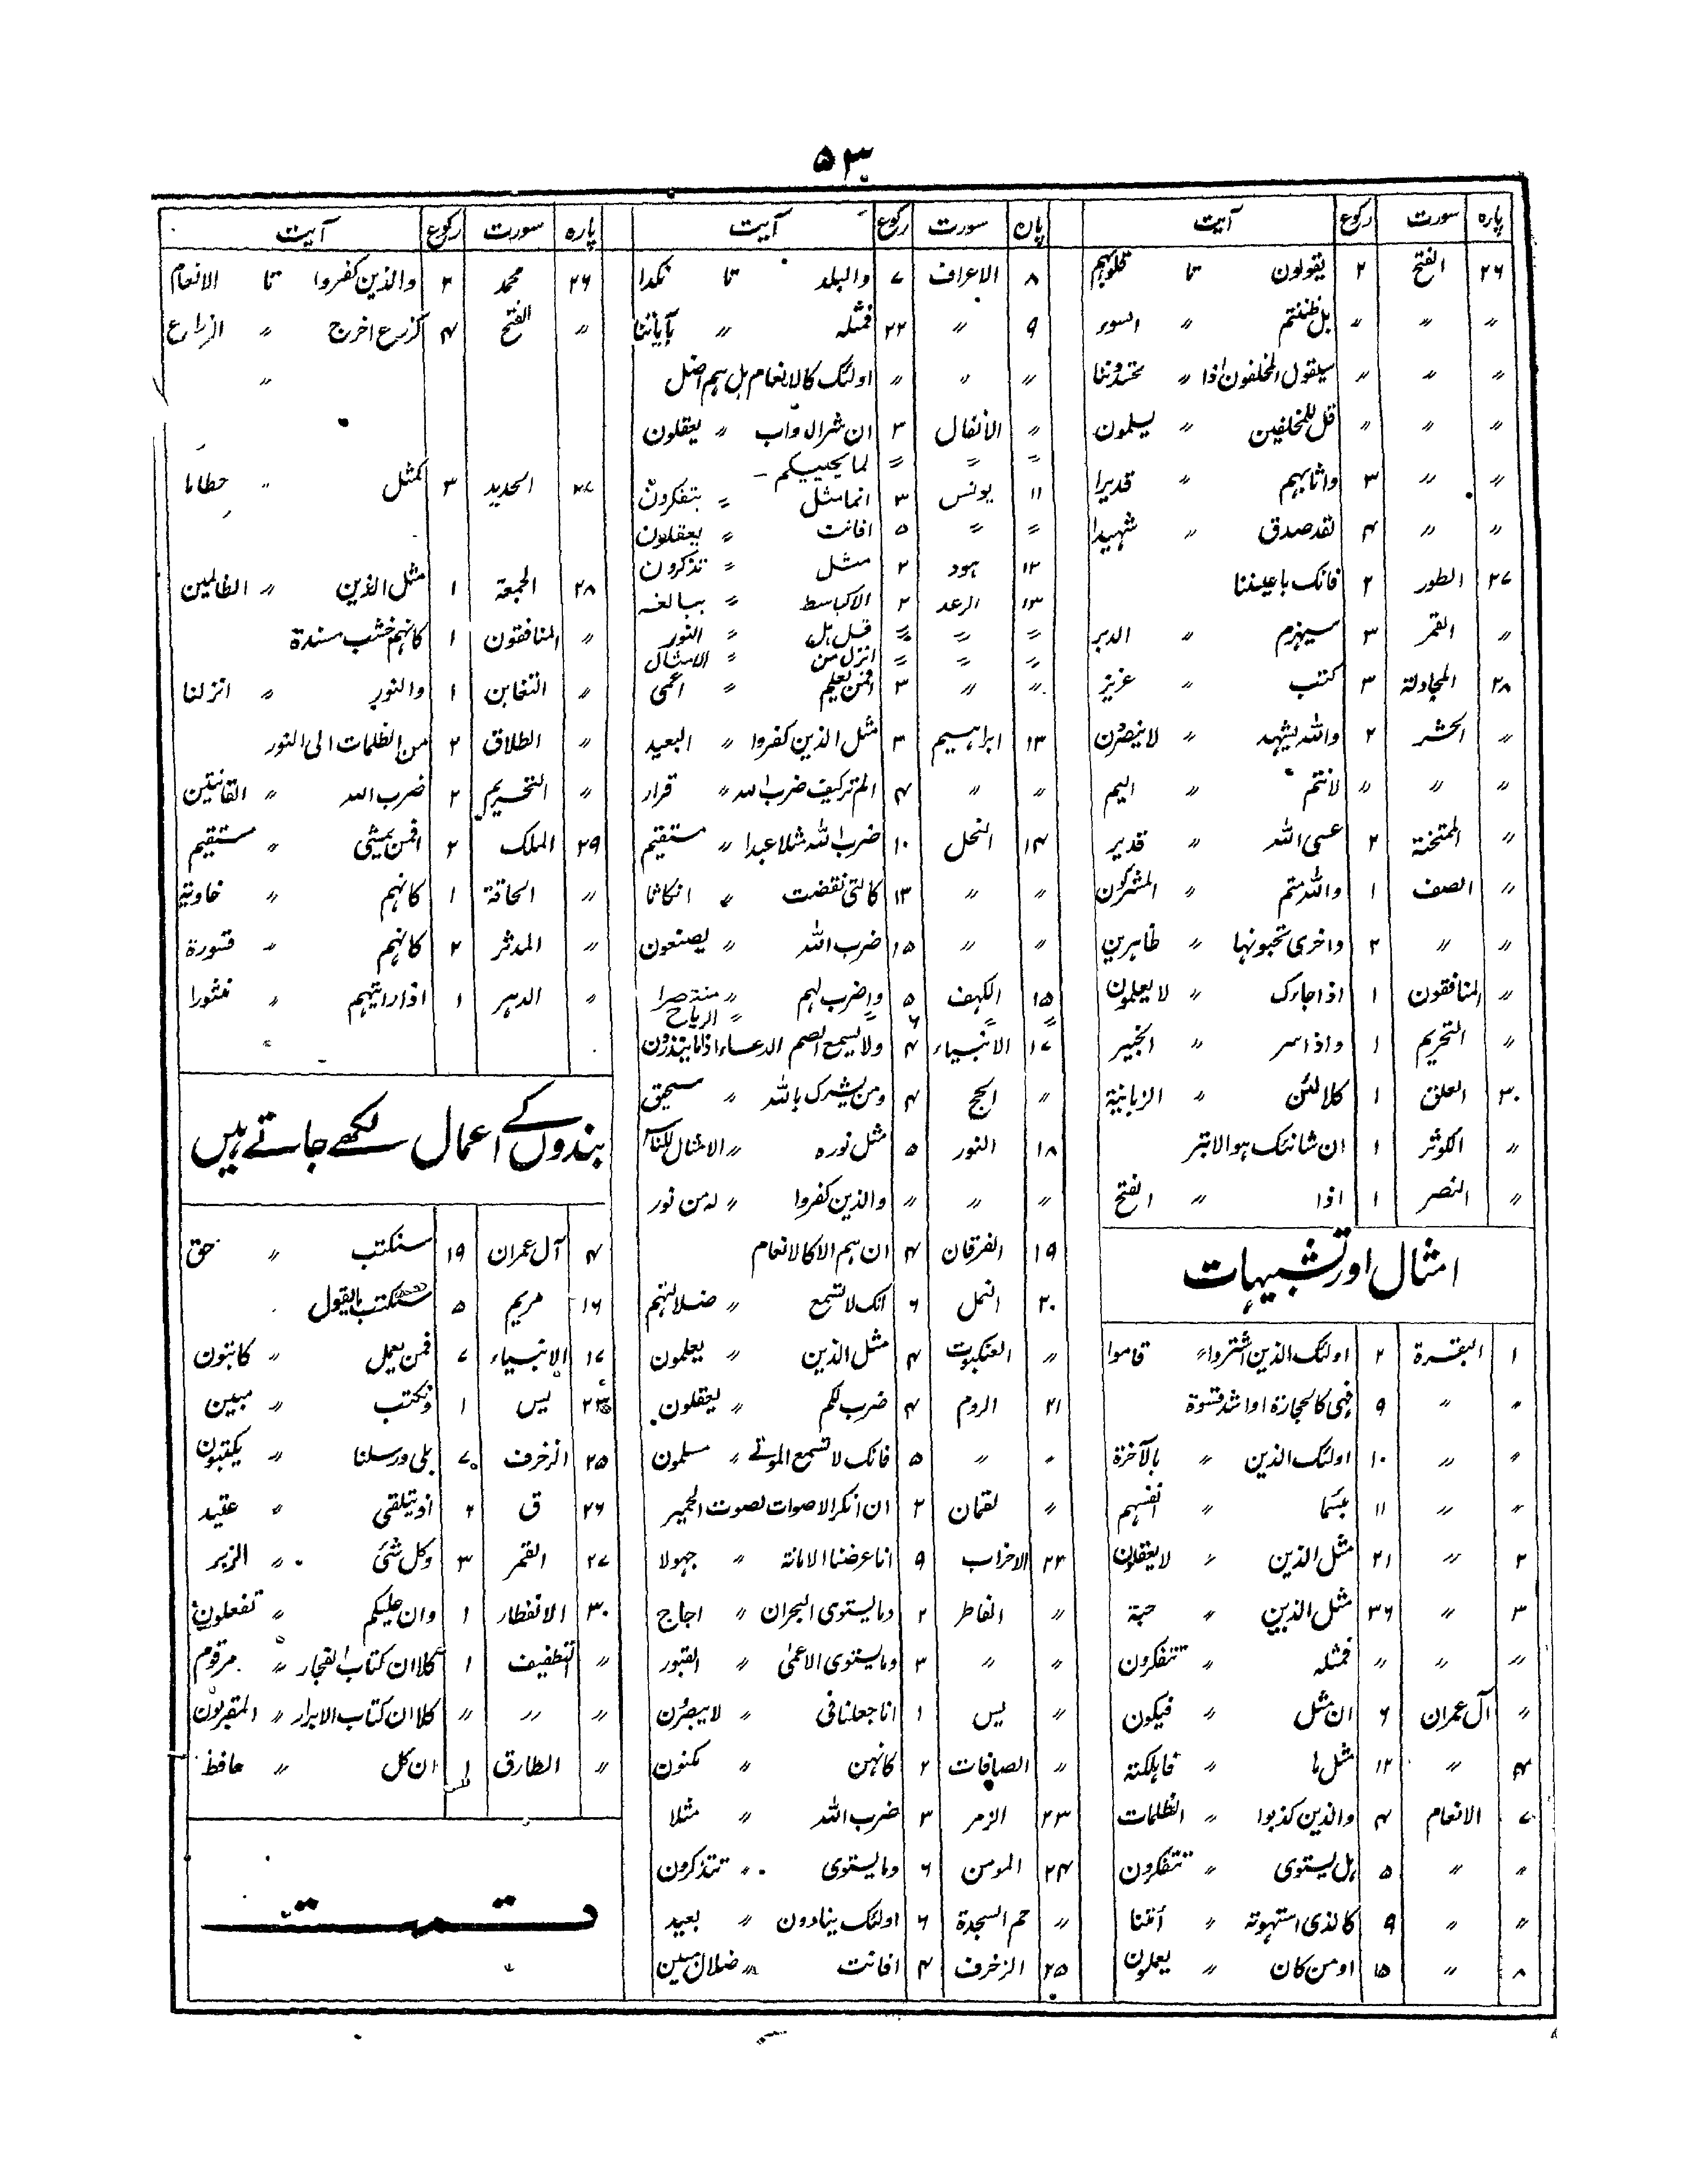 ۵۳
پارہ سورت رکوع آیت
۲۶ الفتح ۲ یقولون تا قلوبہم
〃 〃 〃 بل ظننتم 〃 السوء
〃 〃 〃 سیقول المخلفون اذا 〃 تحسدوننا
〃 〃 〃 قل للمخلفین 〃 یسلمون
〃 〃 ۳ واثابہم 〃 قدیرا
〃 〃 ۴ لقد صدق 〃 شہیدا
۲۷ الطور ۲ فانک باعیننا
〃 القمر ۳ سیہزم 〃 الدبر
۲۸ المجادلۃ ۳ کتب 〃 عزیز
〃 الحشر ۲ واللہ یشہد 〃 لاینصرون
〃 〃 〃 لانتم 〃 الیم
〃 الممتحنۃ ۲ عسی اللہ 〃 قدیر
〃 الصف ۱ واللہ متم 〃 المشرکون
〃 〃 ۲ واخری تحبونہا 〃 ظاہرین
〃 المنافقون ۱ اذا جاءک 〃 لا یعلمون
〃 التحریم ۱ واذ اسر 〃 الخبیر
۳۰ العلق ۱ کلا لئن 〃 الزبانیۃ
〃 الکوثر ۱ ان شانئک ہو الابتر
〃 النصر ۱ اذا 〃 الفتح
امثال اور تشبیہات
۱ البقرۃ ۲ اولئک الذین اشتروا 〃 قاموا
〃 〃 ۹ فہی کالحجارۃ او اشد قسوۃ
〃 〃 ۱۰ اولئک الذین 〃 بالآخرۃ
〃 〃 ۱۱ بئسما 〃 انفسہم
۲ 〃 ۲۱ مثل الذین 〃 لا یعقلون
۳ 〃 ۳۶ مثل الذین 〃 حبۃ
〃 〃 〃 فمثلہ 〃 تتفکرون
〃 آل عمران ۶ ان مثل 〃 فیکون
۴ 〃 ۱۲ مثل ما 〃 فاہلکتہ
۷ الانعام ۴ والذین کذبوا 〃 الظلمات
〃 〃 ۵ ہل یستوی 〃 تتفکرون
〃 〃 ۹ کالذی استہوتہ 〃 أتنا
۸ 〃 ۱۵ اومن کان 〃 یعملون
پارہ سورت رکوع آیت
۸ الاعراف ۷ والبلد تا نکدا
۹ 〃 ۲۲ فمثلہ 〃 بآیاتنا
〃 〃 〃 اولئک کالانعام بل ہم اضل
〃 الانفال ۳ ان شر الدواب 〃 یعقلون
〃 〃 〃 لما یحییکم
۱۱ یونس ۳ انما مثل 〃 یتفکرون
〃 〃 ۵ افانت 〃 یعقلون
۱۲ ہود ۲ مثل 〃 تذکرون
۱۳ الرعد ۲ الا کباسط 〃 ببالغہ
〃 〃 〃 قل ہل 〃 النور
〃 〃 〃 انزل من 〃 الامثال
〃 〃 ۳ افمن یعلم 〃 اعمی
۱۳ ابراہیم ۳ مثل الذین کفروا 〃 البعید
〃 〃 ۴ الم تر کیف ضرب اللہ 〃 قرار
۱۴ النحل ۱۰ ضرب اللہ مثلا عبدا 〃 مستقیم
〃 〃 ۱۳ کالتی نقضت 〃 انکاثا
〃 〃 ۱۵ ضرب اللہ 〃 یصنعون
۱۵ الکہف ۵ واضرب لہم 〃 منتصرا
〃 〃 ۶ 〃 〃 الریاح
۱۷ الانبیاء ۴ ولا یسمع الصم الدعاء اذا ما ینذرون
〃 الحج ۴ ومن یشرک باللہ 〃 سحیق
۱۸ النور ۵ مثل نورہ 〃 الامثال للناس
〃 〃 〃 والذین کفروا 〃 لہ من نور
۱۹ الفرقان ۴ ان ہم الا کالانعام
۲۰ النمل ۶ انک لا تسمع 〃 ضلالتہم
〃 العنکبوت ۴ مثل الذین 〃 یعلمون
۲۱ الروم ۴ ضرب لکم 〃 یعقلون
〃 〃 ۵ فانک لا تسمع الموتے 〃 مسلمون
〃 لقمان ۲ ان انکر الاصوات لصوت الحمیر
۲۲ الاحزاب ۹ انا عرضنا الامانۃ 〃 جہولا
〃 الفاطر ۲ وما یستوی البحران 〃 اجاج
〃 〃 ۳ وما یستوی الاعمیٰ 〃 القبور
〃 یس ۱ انا جعلنا فی 〃 لا یبصرون
〃 الصافات ۲ کانہن 〃 مکنون
۲۳ الزمر ۳ ضرب اللہ 〃 مثلا
۲۴ المومن ۶ وما یستوی 〃 تتذکرون
〃 حم السجدۃ ۶ اولئک ینادون 〃 بعید
۲۵ الزخرف ۴ افانت 〃 ضلال مبین
پارہ سورت رکوع آیت
۲۶ محمد ۲ والذین کفروا تا الانعام
〃 الفتح ۴ کزرع اخرج 〃 الزراع
〃
۲۷ الحدید ۳ کمثل 〃 حطاما
۲۸ الجمعۃ ۱ مثل الذین 〃 الظالمین
〃 المنافقون ۱ کانہم خشب مسندۃ
〃 التغابن ۱ والنور 〃 انزلنا
〃 الطلاق ۲ من الظلمات الی النور
〃 التحریم ۲ ضرب اللہ 〃 القانتین
۲۹ الملک ۲ افمن یمشی 〃 مستقیم
〃 الحاقۃ ۱ کانہم 〃 خاویۃ
〃 المدثر ۲ کانہم 〃 قسورۃ
〃 الدہر ۱ اذا رایتہم 〃 منثورا
بندوں کے اعمال لکھے جاتے ہیں
۴ آل عمران ۱۹ سنکتب 〃 حق
۱۶ مریم ۵ سنکتب ما یقول
۱۷ الانبیاء ۷ فمن یعمل 〃 کاتبون
۲۲ یس ۱ ونکتب 〃 مبین
۲۵ الزخرف ۷ بلی ورسلنا 〃 یکتبون
۲۶ ق ۲ اذ یتلقی 〃 عتید
۲۷ القمر ۳ وکل شئ 〃 الزبر
۳۰ الانفطار ۱ وان علیکم 〃 تفعلون
〃 التطفیف ۱ کلا ان کتاب الفجار 〃 مرقوم
〃 〃 〃 کلا ان کتاب الابرار 〃 المقربون
〃 الطارق ۱ ان کل 〃 حافظ
تمت